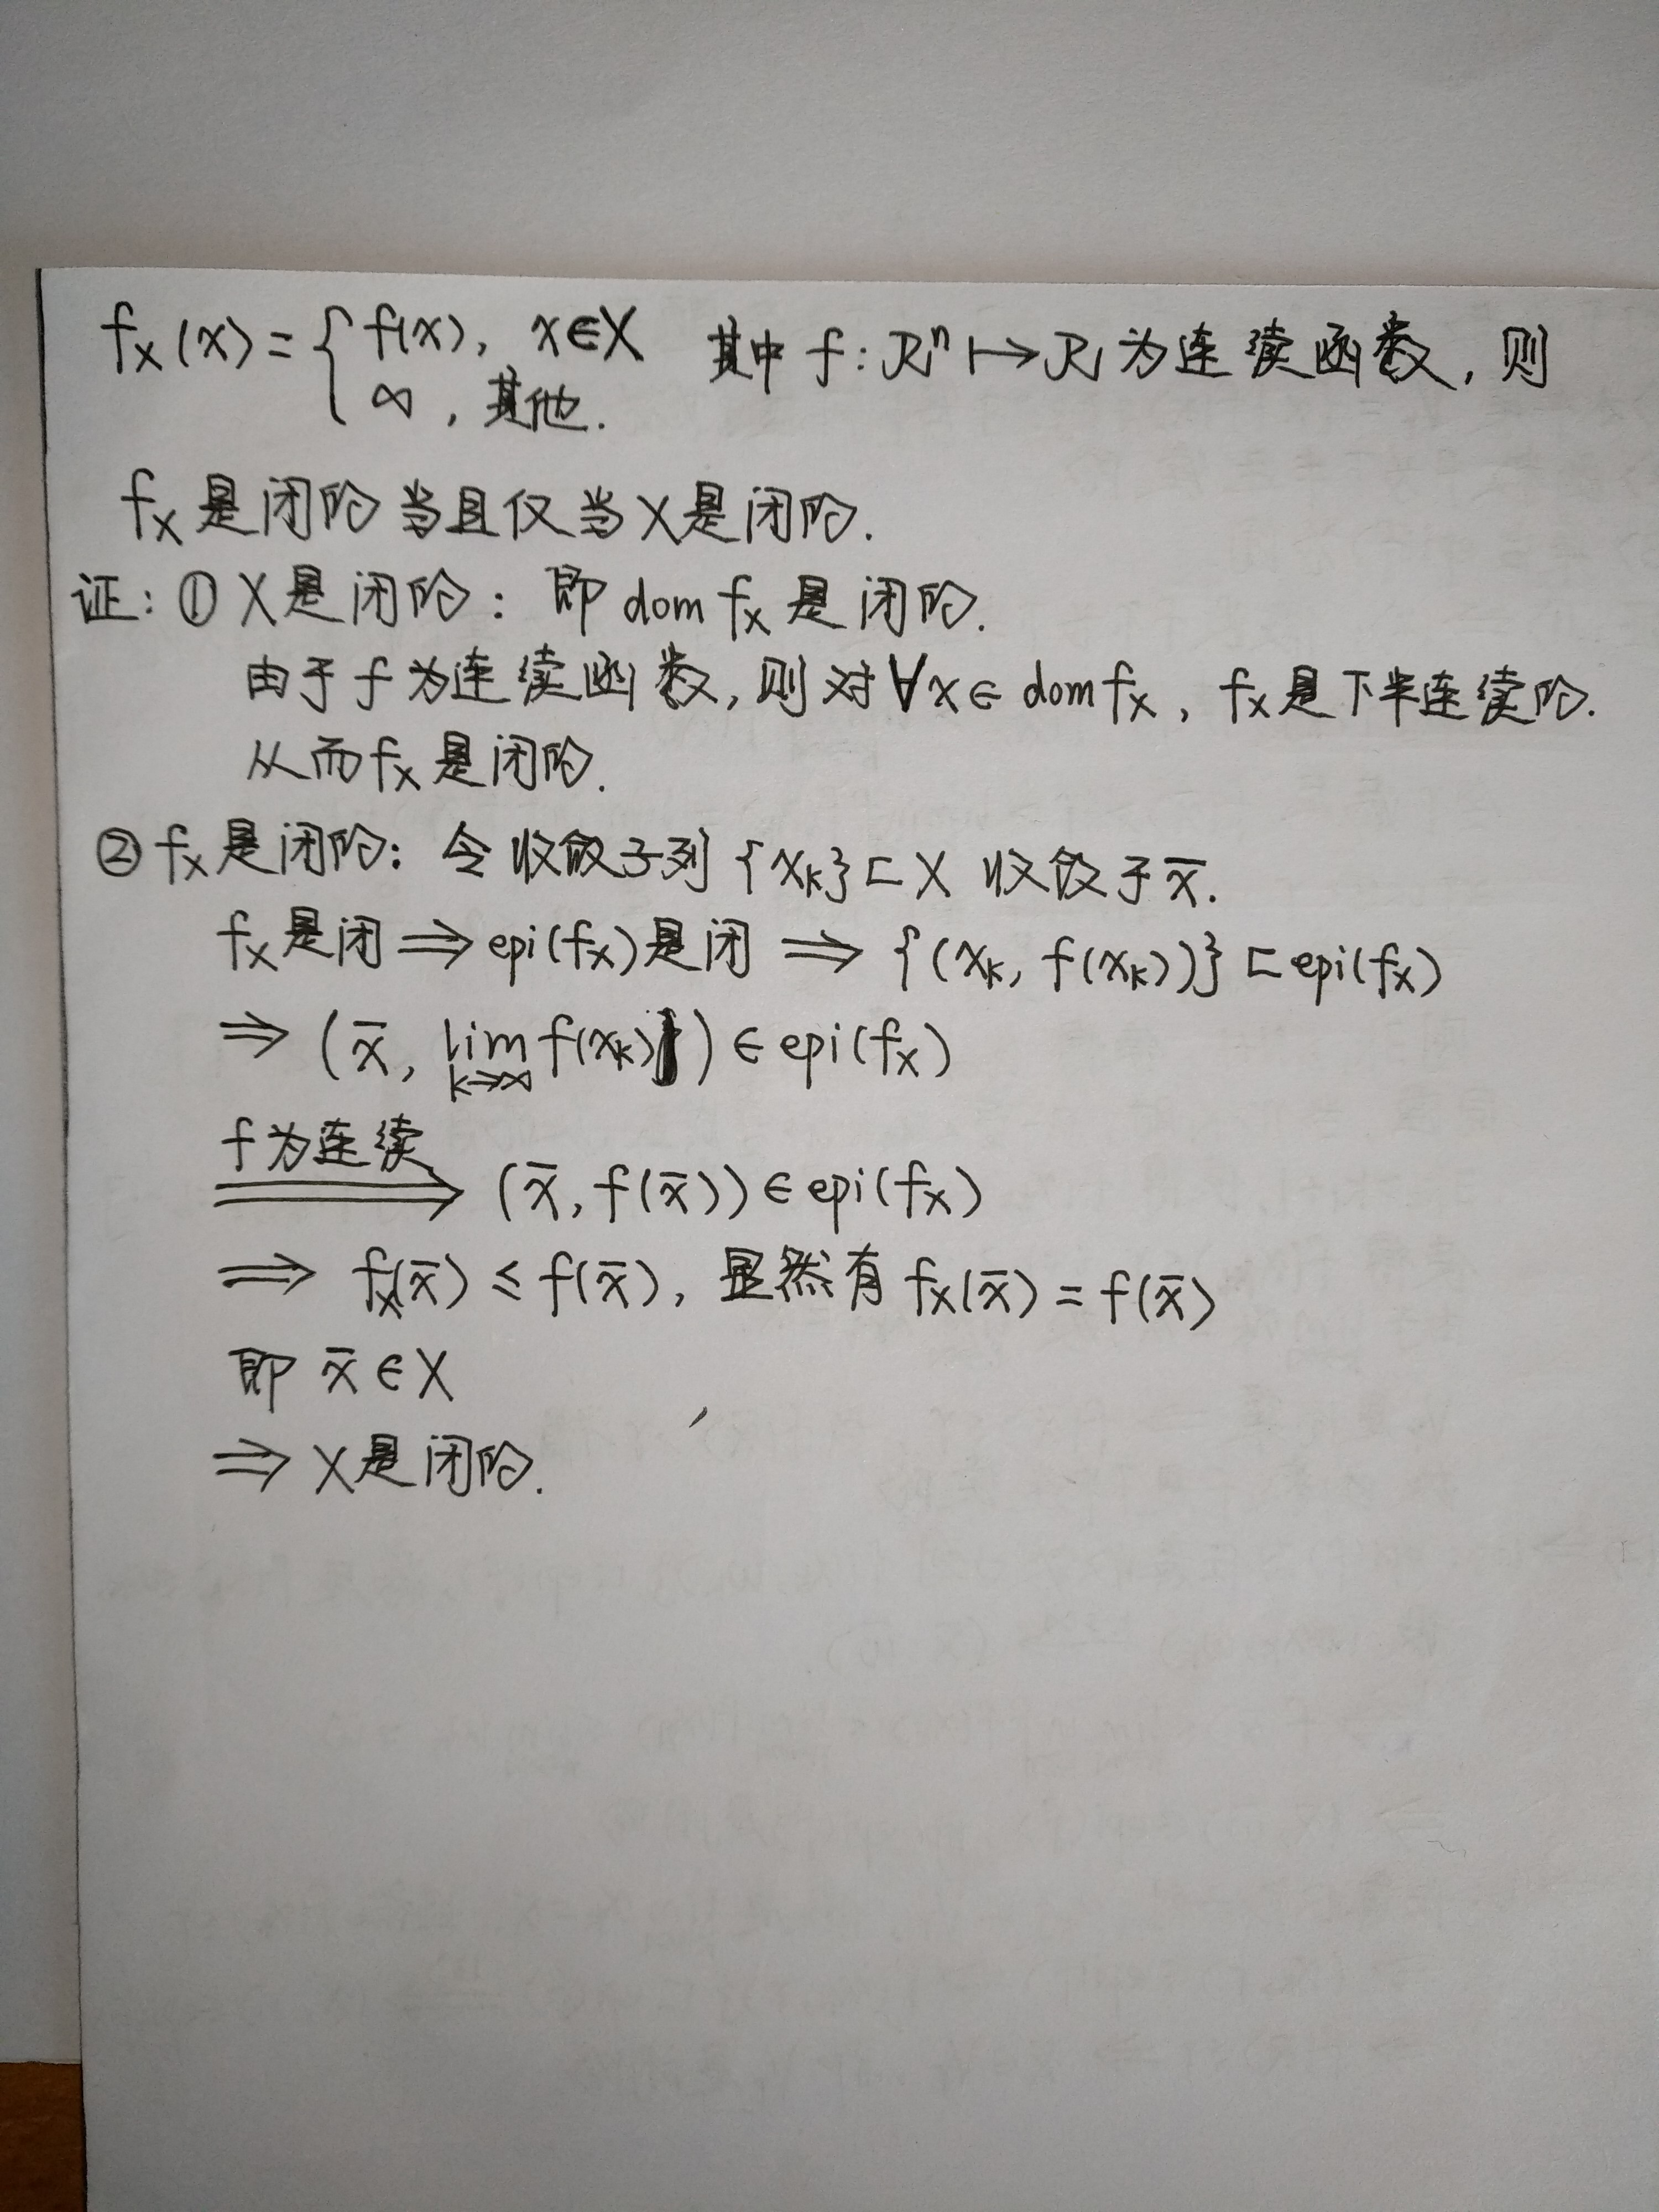 fₓ(x) = { f(x), x∈X 其中 f: Rⁿ ↦ R 为连续函数, 则
∞, 其他.
fₓ 是闭的当且仅当 X 是闭的.
证: ① X 是闭的: 即 dom fₓ 是闭的.
由于 f 为连续函数, 则对 ∀x∈ dom fₓ, fₓ是下半连续的.
从而 fₓ 是闭的.
② fₓ 是闭的: 令收敛子列 {xₖ} ⊏ X 收敛于 x̄.
fₓ 是闭 ⟹ epi(fₓ) 是闭 ⟹ {(xₖ, f(xₖ))} ⊏ epi(fₓ)
⟹ (x̄, lim f(xₖ)) ∈ epi(fₓ)
k→∞
f为连续
⟹ (x̄, f(x̄)) ∈ epi(fₓ)
⟹ fₓ(x̄) ≤ f(x̄), 显然有 fₓ(x̄) = f(x̄)
即 x̄ ∈ X
⟹ X 是闭的.